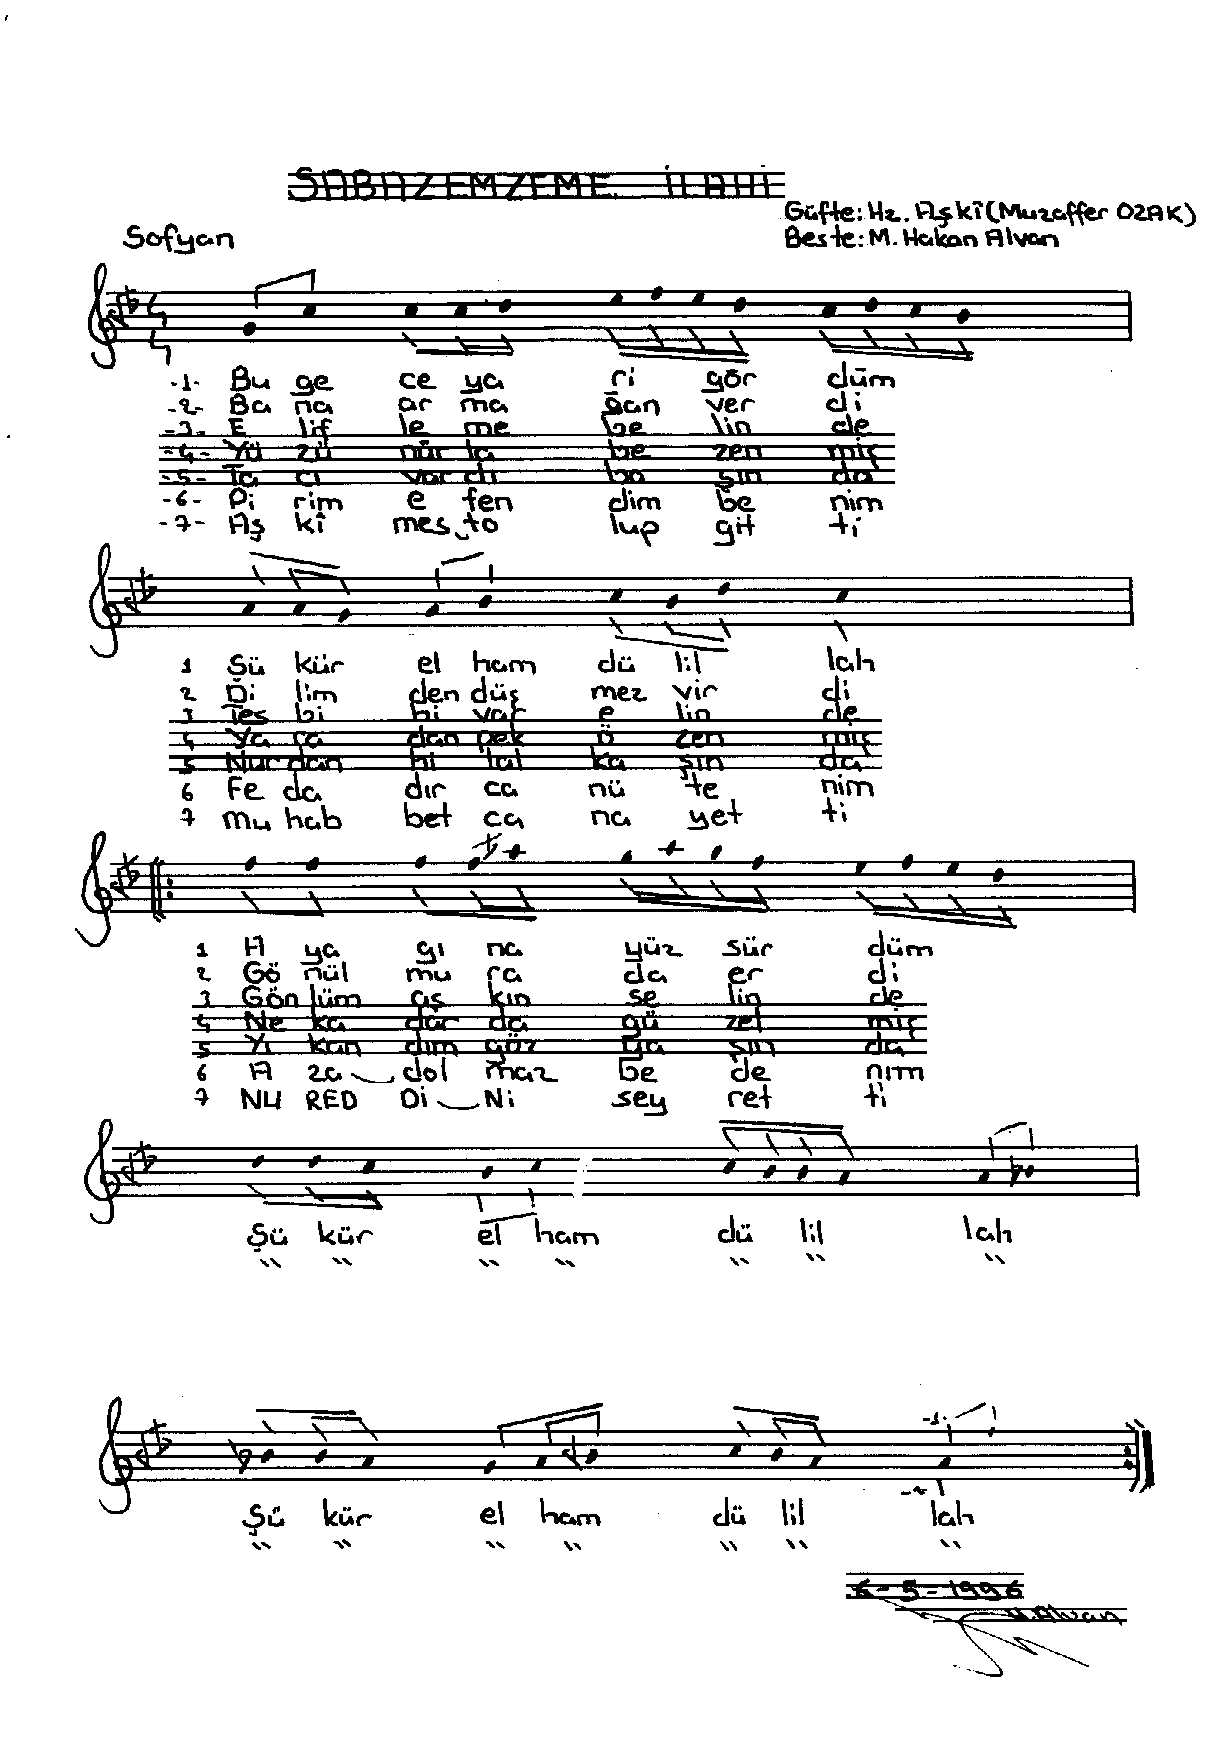 SABAZEMZEME İLAHİ
Güfte: Hz. Aşkî (Muzaffer OZAK)
Sofyan
Beste: M. Hakan Alvan
-1- Bu ge ce ya ri gör düm
-2- Ba na ar ma ğan ver di
-3- E lif le me be lin de
-4- Yü zü nûr la be zen miş
-5- Ta cı var dı ba şın da
-6- Pi rim e fen dim be nim
-7- Aş kî mes to lup git ti
1 Şü kür el ham dü lil lah
2 Di lim den düş mez vir di
3 Tes bi hi var e lin de
4 Ya ra dan pek ö zen miş
5 Nur dan hi lal ka şın da
6 Fe da dır ca nü te nim
7 mu hab bet ca na yet ti
1 A ya gı na yüz sür düm
2 Gö nül mu ra da er di
3 Gön lüm aş kın se lin de
4 Ne ka dar da gü zel miş
5 Yı kan dım göz ya şın da
6 A za dol maz be de nım
7 NU RED Dİ Nİ sey ret ti
Şü kür el ham dü lil lah
" " " " " " "
Şü kür el ham dü lil lah
-1-
-2-
" " " " " " "
6-5-1996
H. Alvan